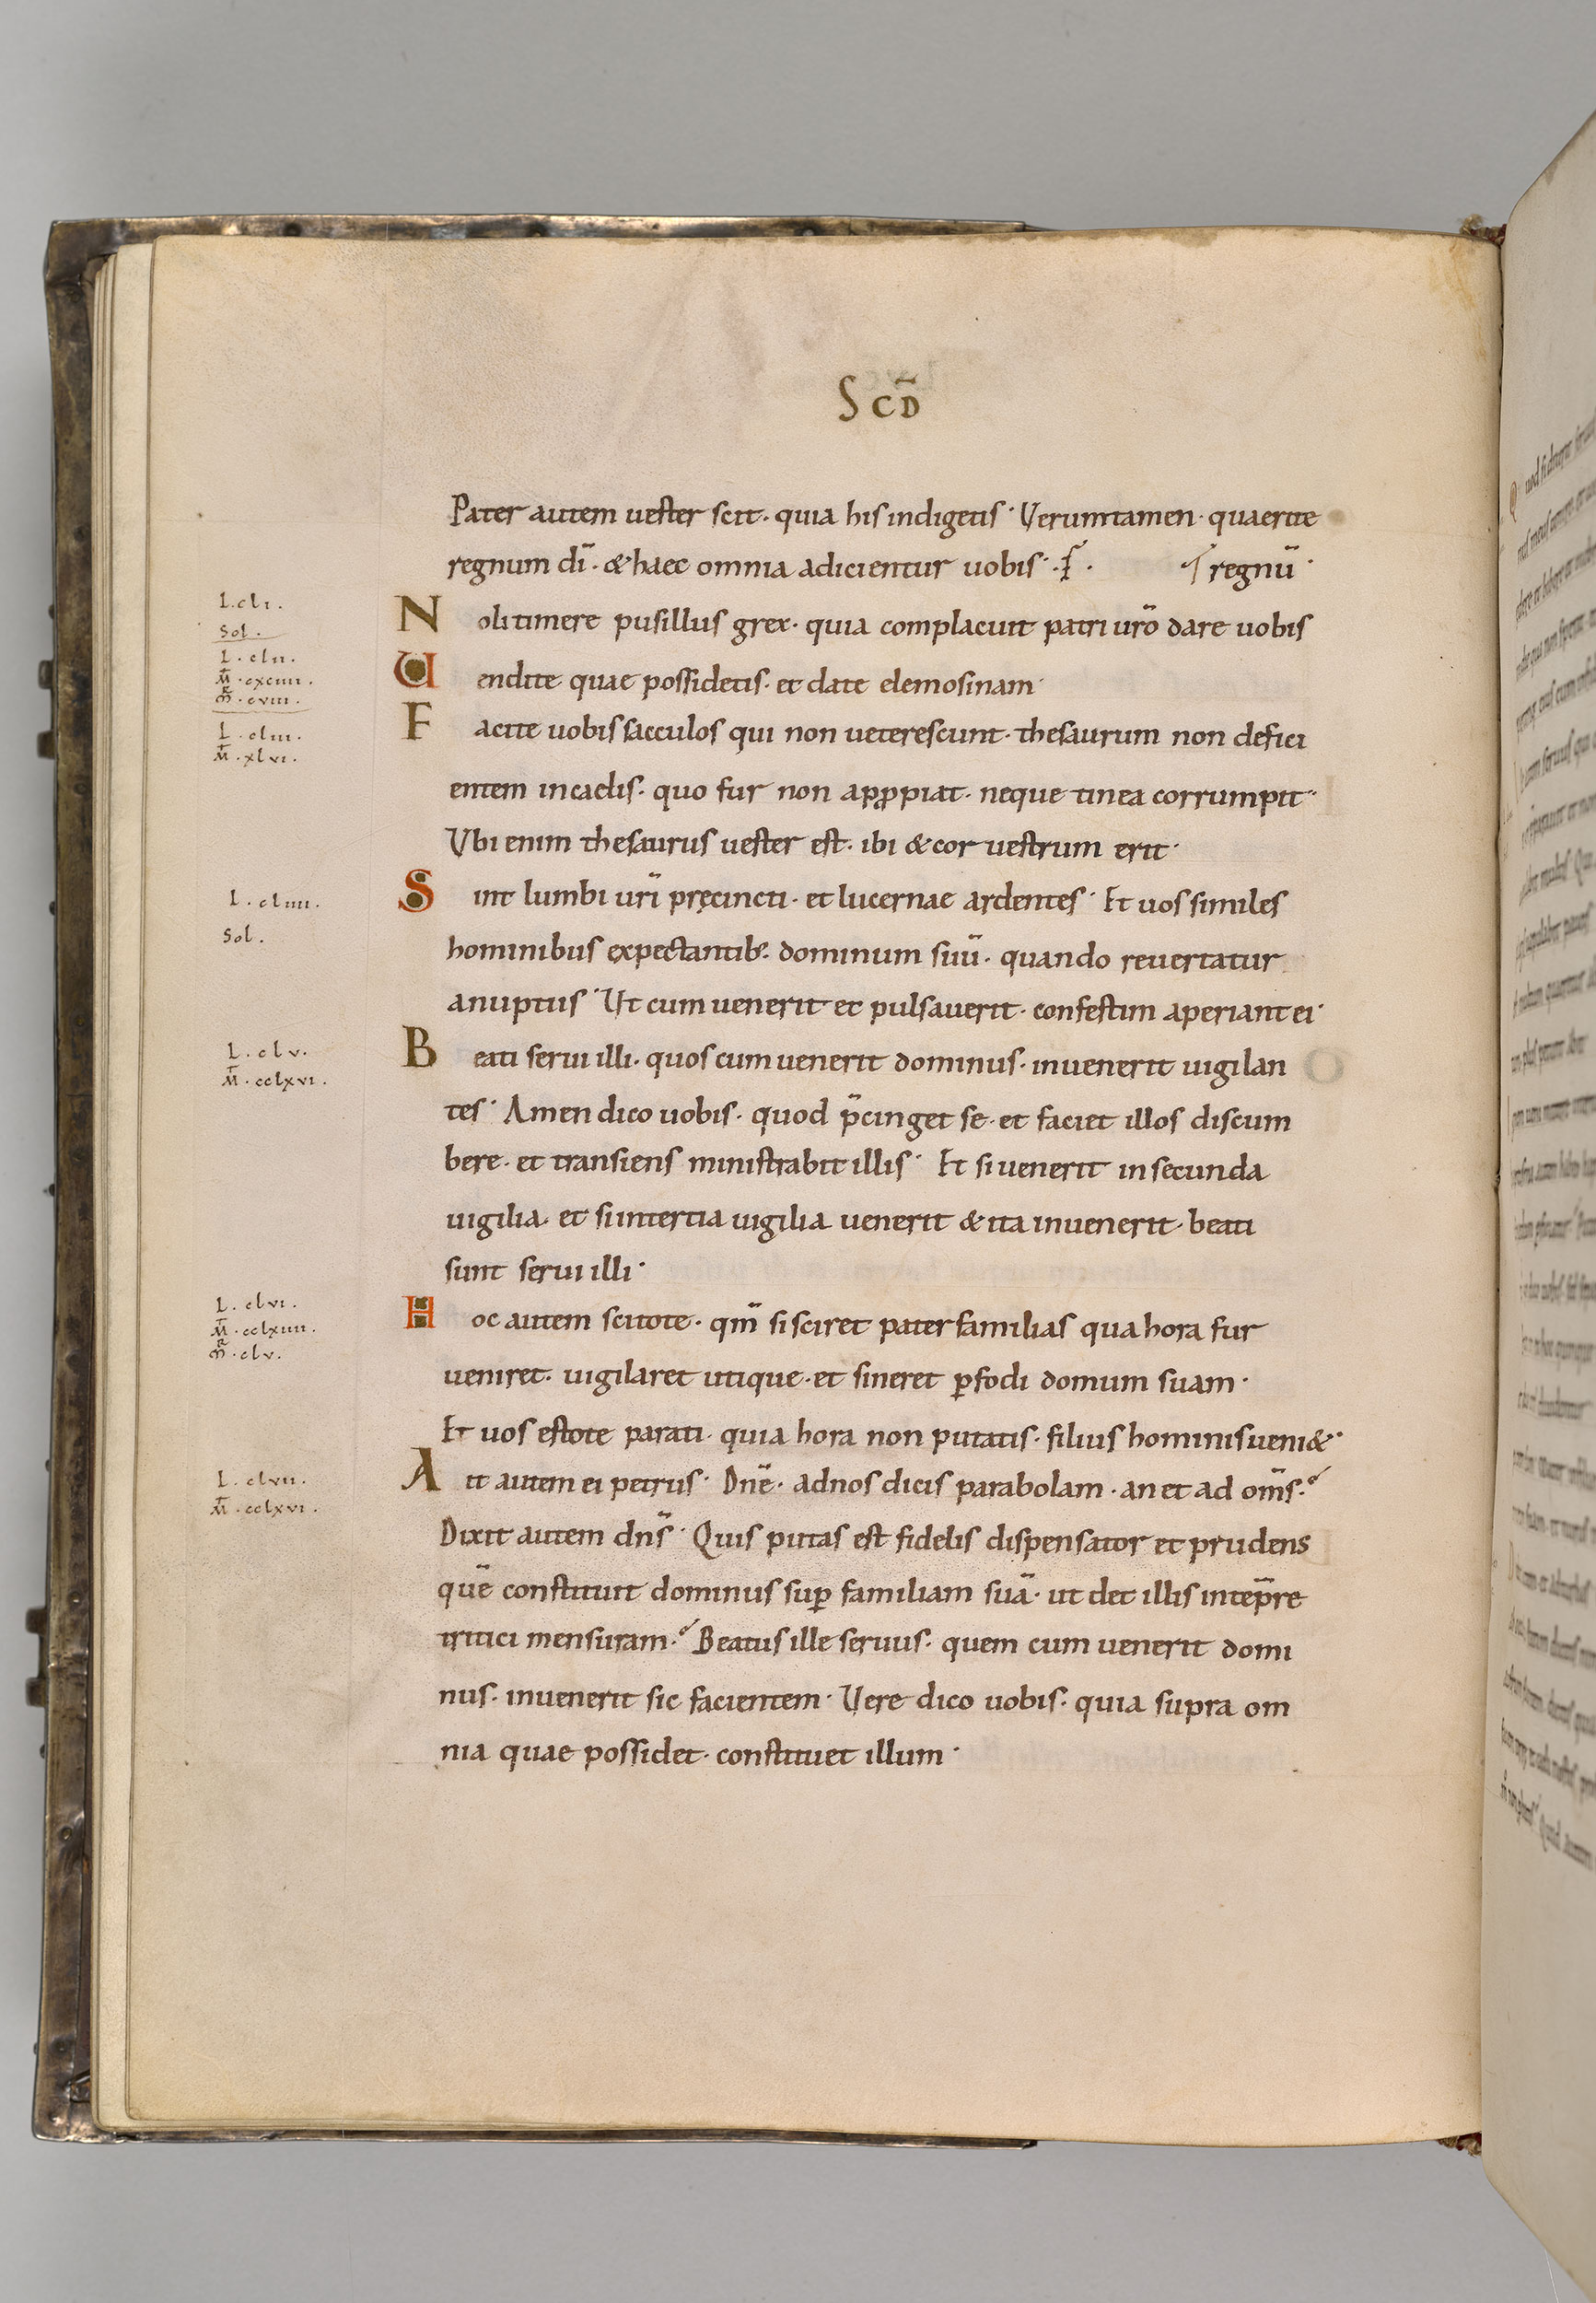 SCD̄
Pater autem uester scit· quia his indigetis· Verumtamen· quaerite
regnum dī· & haec omnia adicientur uobis· regnū·
L·cli·
Sol·
Noli timere pusillus grex· quia complacuit patri urō dare uobis
L·clii·
M̄·cxciiii·
m̄·cviii·
Uendite quae possidetis· et date elemosinam·
L·cliii·
M̄·xlvi·
Facite uobis sacculos qui non ueterescunt· thesaurum non defici
entem in caelis· quo fur non apꝓpiat· neque tinea corrumpit·
Vbi enim thesaurus uester est· ibi & cor uestrum erit·
L·cliiii·
Sol·
Sint lumbi urī pręcincti· et lucernae ardentes· Et uos similes
hominibus expectantib;· dominum suū· quando reuertatur
a nuptiis· Ut cum uenerit et pulsauerit· confestim aperiant ei·
L·clv·
M̄·cclxvi·
Beati serui illi· quos cum uenerit dominus· inuenerit uigilan
tes· Amen dico uobis· quod p̄cinget se· et faciet illos discum
bere· et transiens ministrabit illis· Et si uenerit in secunda
uigilia· et si in tertia uigilia uenerit & ita inuenerit· beati
sunt serui illi·
L·clvi·
M̄·cclxiiii·
m̄·clv·
Hoc autem scitote· qm̄ si sciret pater familias qua hora fur
ueniret· uigilaret utique· et sineret ꝑfodi domum suam·
Et uos estote parati· quia hora non putatis· filius hominis ueni&·
L·clvii·
M̄·cclxvi·
Ait autem ei petrus· Dnē· ad nos dicis parabolam· an et ad om̄s·
Dixit autem dn̄s· Quis putas est fidelis dispensator et prudens
quē constituit dominus suꝑ familiam suā· ut det illis in tep̄re
tritici mensuram· Beatus ille seruus· quem cum uenerit domi
nus· inuenerit sic facientem· Vere dico uobis· quia supra om
nia quae possidet· constituet illum·